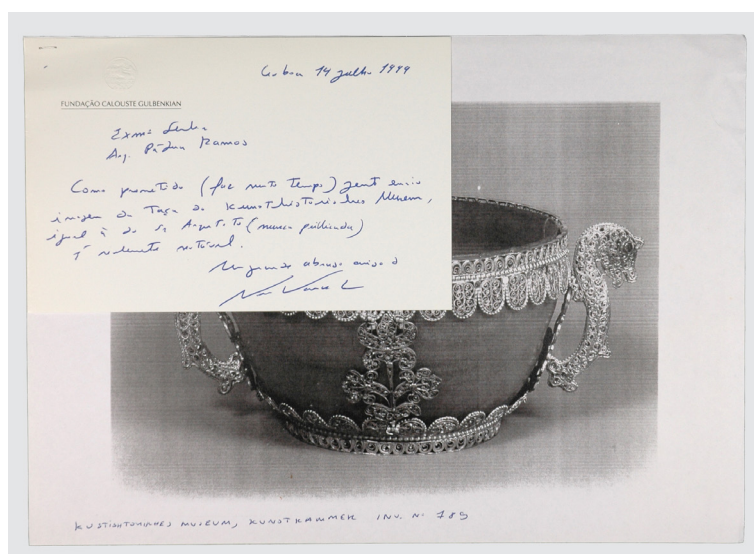 Lisboa 14 julho 1999
FUNDAÇÃO CALOUSTE GULBENKIAN
Exmo Senhor
Arq. Pádua Ramos
Como prometido (faz muito tempo) junto envio
imagem da Taça do Kunsthistorisches Museum,
igual à do Sr Arquitecto (nunca publicada)
É realmente notável.
Um grande abraço amigo d
KUSTISHTORICHES MUSEUM, KUNSTKAMMER INV. Nº 785